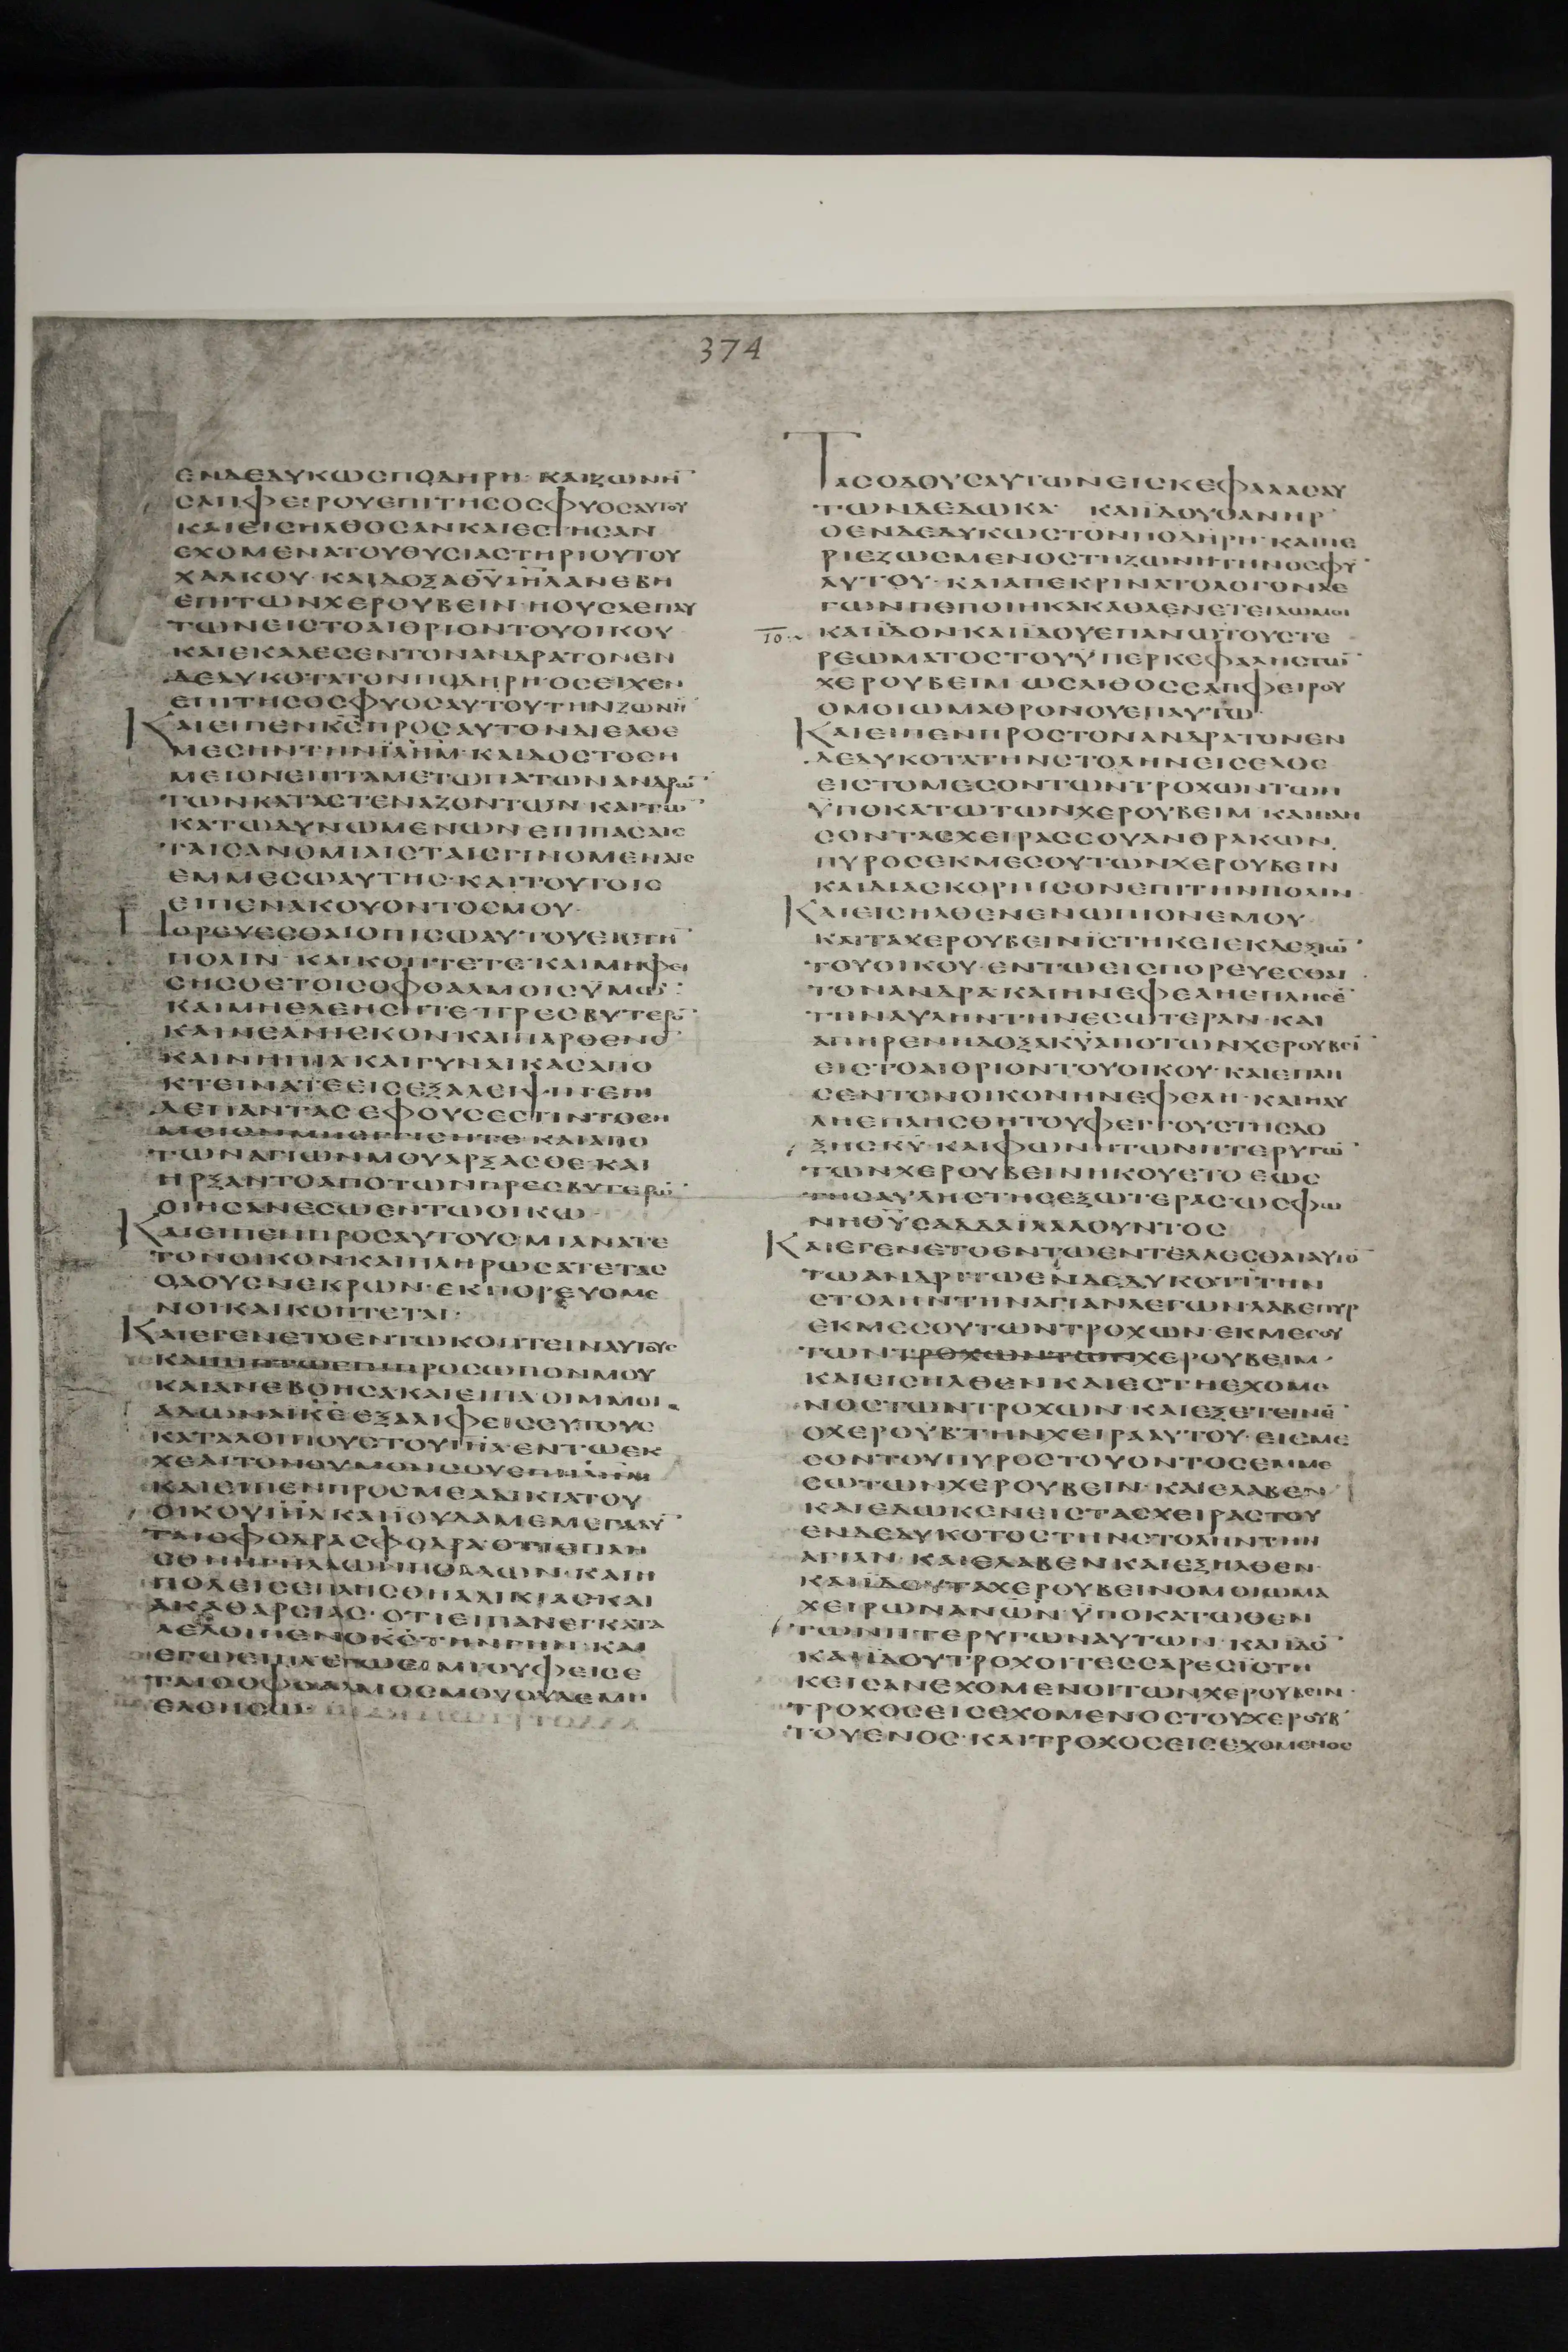 374
ΕΝΔΕΔΥΚΩCΠΟΔΗΡΗ· ΚΑΙΖΩΝΗ
CΑΠΦΕΙΡΟΥΕΠΙΤΗCΟCΦΥΟCΑΥΤΟΥ
ΚΑΙΕΙCΗΛΘΟCΑΝΚΑΙΕCΤΗCΑΝ
ΕΧΟΜΕΝΑΤΟΥΘΥCΙΑCΤΗΡΙΟΥΤΟΥ
ΧΑΛΚΟΥ· ΚΑΙΔΟΞΑΘΥΙΗΛΑΝΕΒΗ
ΕΠΙΤΩΝΧΕΡΟΥΒΕΙΝ·ΗΟΥCΑΕΠΑΥ
ΤΩΝΕΙCΤΟΑΙΘΡΙΟΝΤΟΥΟΙΚΟΥ
ΚΑΙΕΚΑΛΕCΕΝΤΟΝΑΝΔΡΑΤΟΝΕΝ
ΔΕΔΥΚΟΤΑΤΟΝΠΟΔΗΡΗ·ΟCΕΙΧΕΝ
ΕΠΙΤΗCΟCΦΥΟCΑΥΤΟΥΤΗΝΖΩΝΗ
ΚΑΙΕΙΠΕΝΚCΠΡΟCΑΥΤΟΝΔΙΕΛΘΕ
ΜΕCΗΝΤΗΝΙΛΗΜ·ΚΑΙΔΟCΤΟCΗ
ΜΕΙΟΝΕΠΙΤΑΜΕΤΩΠΑΤΩΝΑΝΔΡΩ
ΤΩΝΚΑΤΑCΤΕΝΑΖΟΝΤΩΝ·ΚΑΙΤΩ
ΚΑΤΩΔΥΝΩΜΕΝΩΝΕΠΙΠΑCΑΙC
ΤΑΙCΑΝΟΜΙΑΙCΤΑΙCΓΙΝΟΜΕΝΑΙC
ΕΜΜΕCΩΑΥΤΗC·ΚΑΙΤΟΥΤΟΙC
ΕΙΠΕΝΑΚΟΥΟΝΤΟCΜΟΥ·
ΠΟΡΕΥΕCΘΑΙΟΠΙCΩΑΥΤΟΥΕΙCΤΗ
ΠΟΛΙΝ· ΚΑΙΚΟΠΤΕΤΕ·ΚΑΙΜΗΦΕΙ
CΗCΘΕΤΟΙCΟΦΘΑΛΜΟΙCΫΜΩ
ΚΑΙΜΗΕΛΕΗCΗΤΕ·ΠΡΕCΒΥΤΕΡΟ
ΚΑΙΝΕΑΝΙCΚΟΝ·ΚΑΙΠΑΡΘΕΝΟ
ΚΑΙΝΗΠΙΑΚΑΙΓΥΝΑΙΚΑCΑΠΟ
ΚΤΕΙΝΑΤΕΕΙCΕΞΑΛΕΙΨΙΝ·ΕΠΙ
ΔΕΠΑΝΤΑCΕΦΟΥCΕCΤΙΝΤΟCΗ
ΜΕΙΟΝΜΗΕΓΓΙCΗΤΕ·ΚΑΙΑΠΟ
ΤΩΝΑΓΙΩΝΜΟΥΑΡΞΑCΘΕ·ΚΑΙ
ΗΡΞΑΝΤΟΑΠΟΤΩΝΠΡΕCΒΥΤΕΡΩ
ΟΙΗCΑΝΕCΩΕΝΤΩΟΙΚΩ·
ΚΑΙΕΙΠΕΝΠΡΟCΑΥΤΟΥCΜΙΑΝΑΤΕ
ΤΟΝΟΙΚΟΝ·ΚΑΙΠΛΗΡΩCΑΤΕΤΑC
ΟΔΟΥCΝΕΚΡΩΝ·ΕΚΠΟΡΕΥΟΜΕ
ΝΟΙΚΑΙΚΟΠΤΕΤΑΙ·
ΚΑΙΕΓΕΝΕΤΟΕΝΤΩΚΟΠΤΕΙΝΑΥΤΟΥC
ΚΑΙΠΙΠΤΩΕΠΙΠΡΟCΩΠΟΝΜΟΥ
ΚΑΙΑΝΕΒΟΗCΑΚΑΙΕΙΠΑΟΙΜΜΟΙ
ΑΔΩΝΑΙΚΕΕΞΑΛΙΦΕΙCCΥΤΟΥC
ΚΑΤΑΛΟΙΠΟΥCΤΟΥΙΗΛ·ΕΝΤΩΕΚ
ΧΕΑΙΤΟΝΘΥΜΟΝCΟΥΕΠΙΙΛΗΜ
ΚΑΙΕΙΠΕΝΠΡΟCΜΕΑΔΙΚΙΑΤΟΥ
ΟΙΚΟΥΙΗΛΚΑΙΙΟΥΔΑΜΕΜΕΓΑΛΥ
ΤΑΙCΦΟΔΡΑCΦΟΔΡΑ·ΟΤΙΕΠΛΗ
CΘΗΗΓΗΛΑΩΝΠΟΛΛΩΝ·ΚΑΙΗ
ΠΟΛΕΙCΕΠΛΗCΘΗΑΔΙΚΙΑC·ΚΑΙ
ΑΚΑΘΑΡCΙΑC·ΟΤΙΕΙΠΑΝΕΓΚΑΤΑ
ΛΕΛΟΙΠΕΝΟΚCΤΗΝΓΗΝ·ΚΑΙ
ΕΛΕΗCΩ·
ΤΑCΟΔΟΥCΑΥΤΩΝΕΙCΚΕΦΑΛΑCΑΥ
ΤΩΝΔΕΔΩΚΑ· ΚΑΙΙΔΟΥΟΑΝΗΡ
ΟΕΝΔΕΔΥΚΩCΤΟΝΠΟΔΗΡΗ·ΚΑΙΠΕ
ΡΙΕΖΩCΜΕΝΟCΤΗΖΩΝΗΤΗΝΟCΦΥ
ΑΥΤΟΥ·ΚΑΙΑΠΕΚΡΙΝΑΤΟΛΟΓΟΝΛΕ
ΓΩΝΠΕΠΟΙΗΚΑΚΑΘΑΕΝΕΤΕΙΛΩΜΟΙ
ΚΑΙΙΔΟΝΚΑΙΙΔΟΥΕΠΑΝΩΤΟΥCΤΕ
ΡΕΩΜΑΤΟCΤΟΥΫΠΕΡΚΕΦΑΛΗCΤΩ
ΧΕΡΟΥΒΕΙΜ ΩCΛΙΘΟCCΑΠΦΕΙΡΟΥ
ΟΜΟΙΩΜΑΘΡΟΝΟΥΕΠΑΥΤΩ·
ΚΑΙΕΙΠΕΝΠΡΟCΤΟΝΑΝΔΡΑΤΟΝΕΝ
ΔΕΔΥΚΟΤΑΤΗΝCΤΟΛΗΝΕΙCΕΛΘΕ
ΕΙCΤΟΜΕCΟΝΤΩΝΤΡΟΧΩΝΤΩΝ
ΫΠΟΚΑΤΩΤΩΝΧΕΡΟΥΒΕΙΜ·ΚΑΙΠΛΗ
CΟΝΤΑCΧΕΙΡΑCCΟΥΑΝΘΡΑΚΩΝ
ΠΥΡΟCΕΚΜΕCΟΥΤΩΝΧΕΡΟΥΒΕΙΝ
ΚΑΙΔΙΑCΚΟΡΠΙCΟΝΕΠΙΤΗΝΠΟΛΙΝ·
ΚΑΙΕΙCΗΛΘΕΝΕΝΩΠΙΟΝΕΜΟΥ
ΚΑΙΤΑΧΕΡΟΥΒΕΙΝΙCΤΗΚΕΙΕΚΔΕΞΙΩ
ΤΟΥΟΙΚΟΥ·ΕΝΤΩΕΙCΠΟΡΕΥΕCΘΑΙ
ΤΟΝΑΝΔΡΑ·ΚΑΙΗΝΕΦΕΛΗΕΠΛΗCΕ
ΤΗΝΑΥΛΗΝΤΗΝΕCΩΤΕΡΑΝ·ΚΑΙ
ΑΠΗΡΕΝΗΔΟΞΑΚΥΑΠΟΤΩΝΧΕΡΟΥΒΕΙ
ΕΙCΤΟΑΙΘΡΙΟΝΤΟΥΟΙΚΟΥ·ΚΑΙΕΠΛΗ
CΕΝΤΟΝΟΙΚΟΝΗΝΕΦΕΛΗ·ΚΑΙΗΑΥ
ΛΗΕΠΛΗCΘΗΤΟΥΦΕΓΓΟΥCΤΗCΔΟ
ΞΗCΚΥ·ΚΑΙΦΩΝΗΤΩΝΠΤΕΡΥΓΩ
ΤΩΝΧΕΡΟΥΒΕΙΝΗΚΟΥΕΤΟΕΩC
ΤΗCΑΥΛΗCΤΗCΕΞΩΤΕΡΑC·ΩCΦΩ
ΝΗΘΥCΑΔΔΑΙΛΑΛΟΥΝΤΟC
ΚΑΙΕΓΕΝΕΤΟΕΝΤΩΕΝΤΕΛΛΕCΘΑΙΑΥΤΟ
ΤΩΑΝΔΡΙΤΩΕΝΔΕΔΥΚΟΤΙΤΗΝ
CΤΟΛΗΝΤΗΝΑΓΙΑΝΛΕΓΩΝ·ΛΑΒΕΠΥΡ
ΕΚΜΕCΟΥΤΩΝΤΡΟΧΩΝ·ΕΚΜΕCΟΥ
ΤΩΝΤΡΟΧΩΝΤΩΝΧΕΡΟΥΒΕΙΜ·
ΚΑΙΕΙCΗΛΘΕΝΚΑΙΕCΤΗΕΧΟΜΕ
ΝΟCΤΩΝΤΡΟΧΩΝ·ΚΑΙΕΞΕΤΕΙΝΕ
ΟΧΕΡΟΥΒΤΗΝΧΕΙΡΑΑΥΤΟΥ·ΕΙCΜΕ
CΟΝΤΟΥΠΥΡΟCΤΟΥΟΝΤΟCΕΜΜΕ
CΩΤΩΝΧΕΡΟΥΒΕΙΝ·ΚΑΙΕΛΑΒΕΝ
ΚΑΙΕΔΩΚΕΝΕΙCΤΑCΧΕΙΡΑCΤΟΥ
ΕΝΔΕΔΥΚΟΤΟCΤΗΝCΤΟΛΗΝΤΗΝ
ΑΓΙΑΝ·ΚΑΙΕΛΑΒΕΝΚΑΙΕΞΗΛΘΕΝ·
ΚΑΙΙΔΟΥΤΑΧΕΡΟΥΒΕΙΝΟΜΟΙΩΜΑ
ΧΕΙΡΩΝΑΝΩΝΫΠΟΚΑΤΩΘΕΝ
ΤΩΝΠΤΕΡΥΓΩΝΑΥΤΩΝ·ΚΑΙΙΔΟ
ΚΑΙΙΔΟΥΤΡΟΧΟΙΤΕCCΑΡΕCΙCΤΗ
ΚΕΙCΑΝΕΧΟΜΕΝΟΙΤΩΝΧΕΡΟΥΒΕΙΝ·
ΤΡΟΧΟCΕΙCΕΧΟΜΕΝΟCΤΟΥΧΕΡΟΥΒ
ΤΟΥΕΝΟC·ΚΑΙΤΡΟΧΟCΕΙCΕΧΟΜΕΝΟC